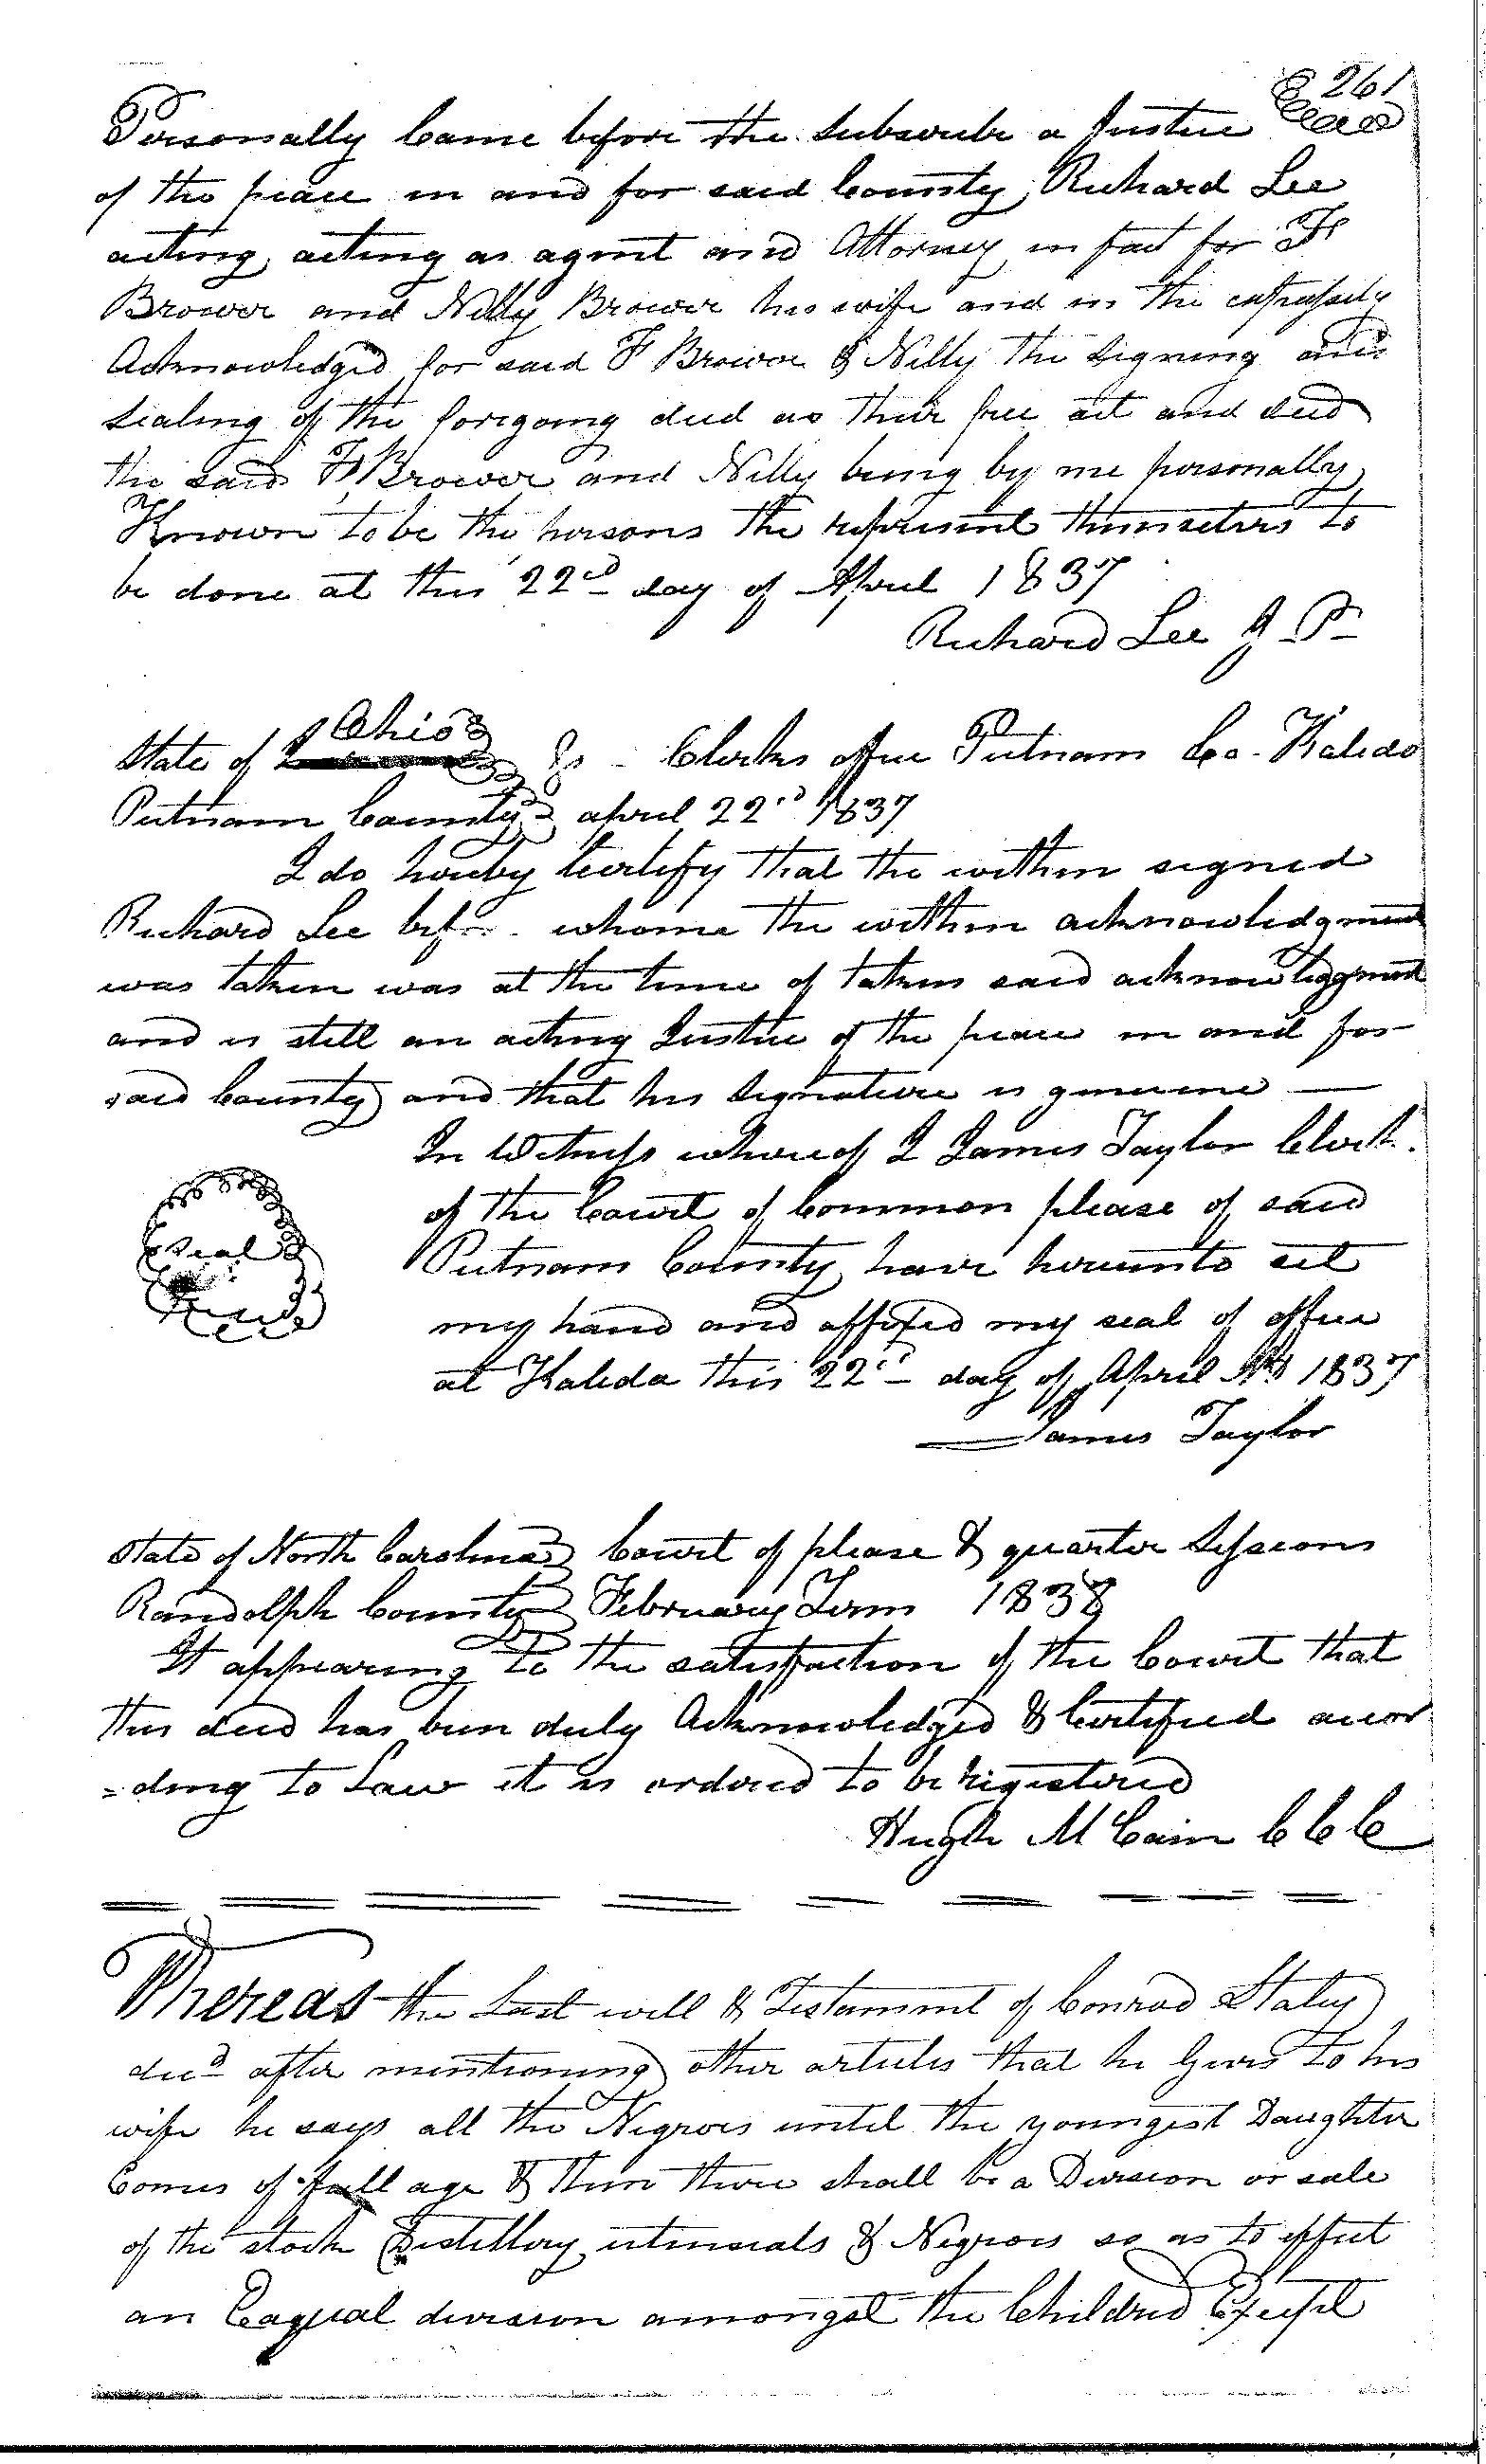 261
Personally Came before the Subscribe a Justice
of the peace in and for said County, Richard Lee
acting, acting as agent and Attorney in fact for F
Brower and Nelly Brower his wife and in the
Acknowledged for said F Brower & Nelly the signing and
sealing of the foregoing deed as their free act and deed
the said F Brower and Nelly being by me personally
Known to be the persons the represent themselves to
be done at this 22nd day of April 1837
Richard Lee J P
State of Ohio Ss - Clerks office Putnam Co. Kalida
Putnam County april 22nd 1837
I do hereby Certify that the within signed
Richard Lee before whome the within acknowledgment
was taken was at the time of taken said acknowledgment
and is still an acting Justice of the peace in and for
said County and that his Signature is genuine —
In Witness whereof I James Taylor Clerk.
of the Court of Common please of said
Seal
Putnam County have hereunto set
my hand and affixed my seal of office
at Kalida this 22nd day of April AD 1837
James Taylor
State of North Carolina Court of please & quarter Sessions
Randolph County February Term 1838
It appearing to the satisfaction of the Court that
this deed has been duly Acknowledged & Certified accor
=ding to Law it is ordered to be registered
Hugh McCain C C C
Whereas the Last will & Testament of Conrad Staley
decd after mentioning other articles that he Gives to his
wife he says all the Negroes until the youngest Daughter
Comes of full age & then there shall be a Division or sale
of the stock Distillery utensials & Negroes so as to effect
an Eaqual division amongst the Children Except